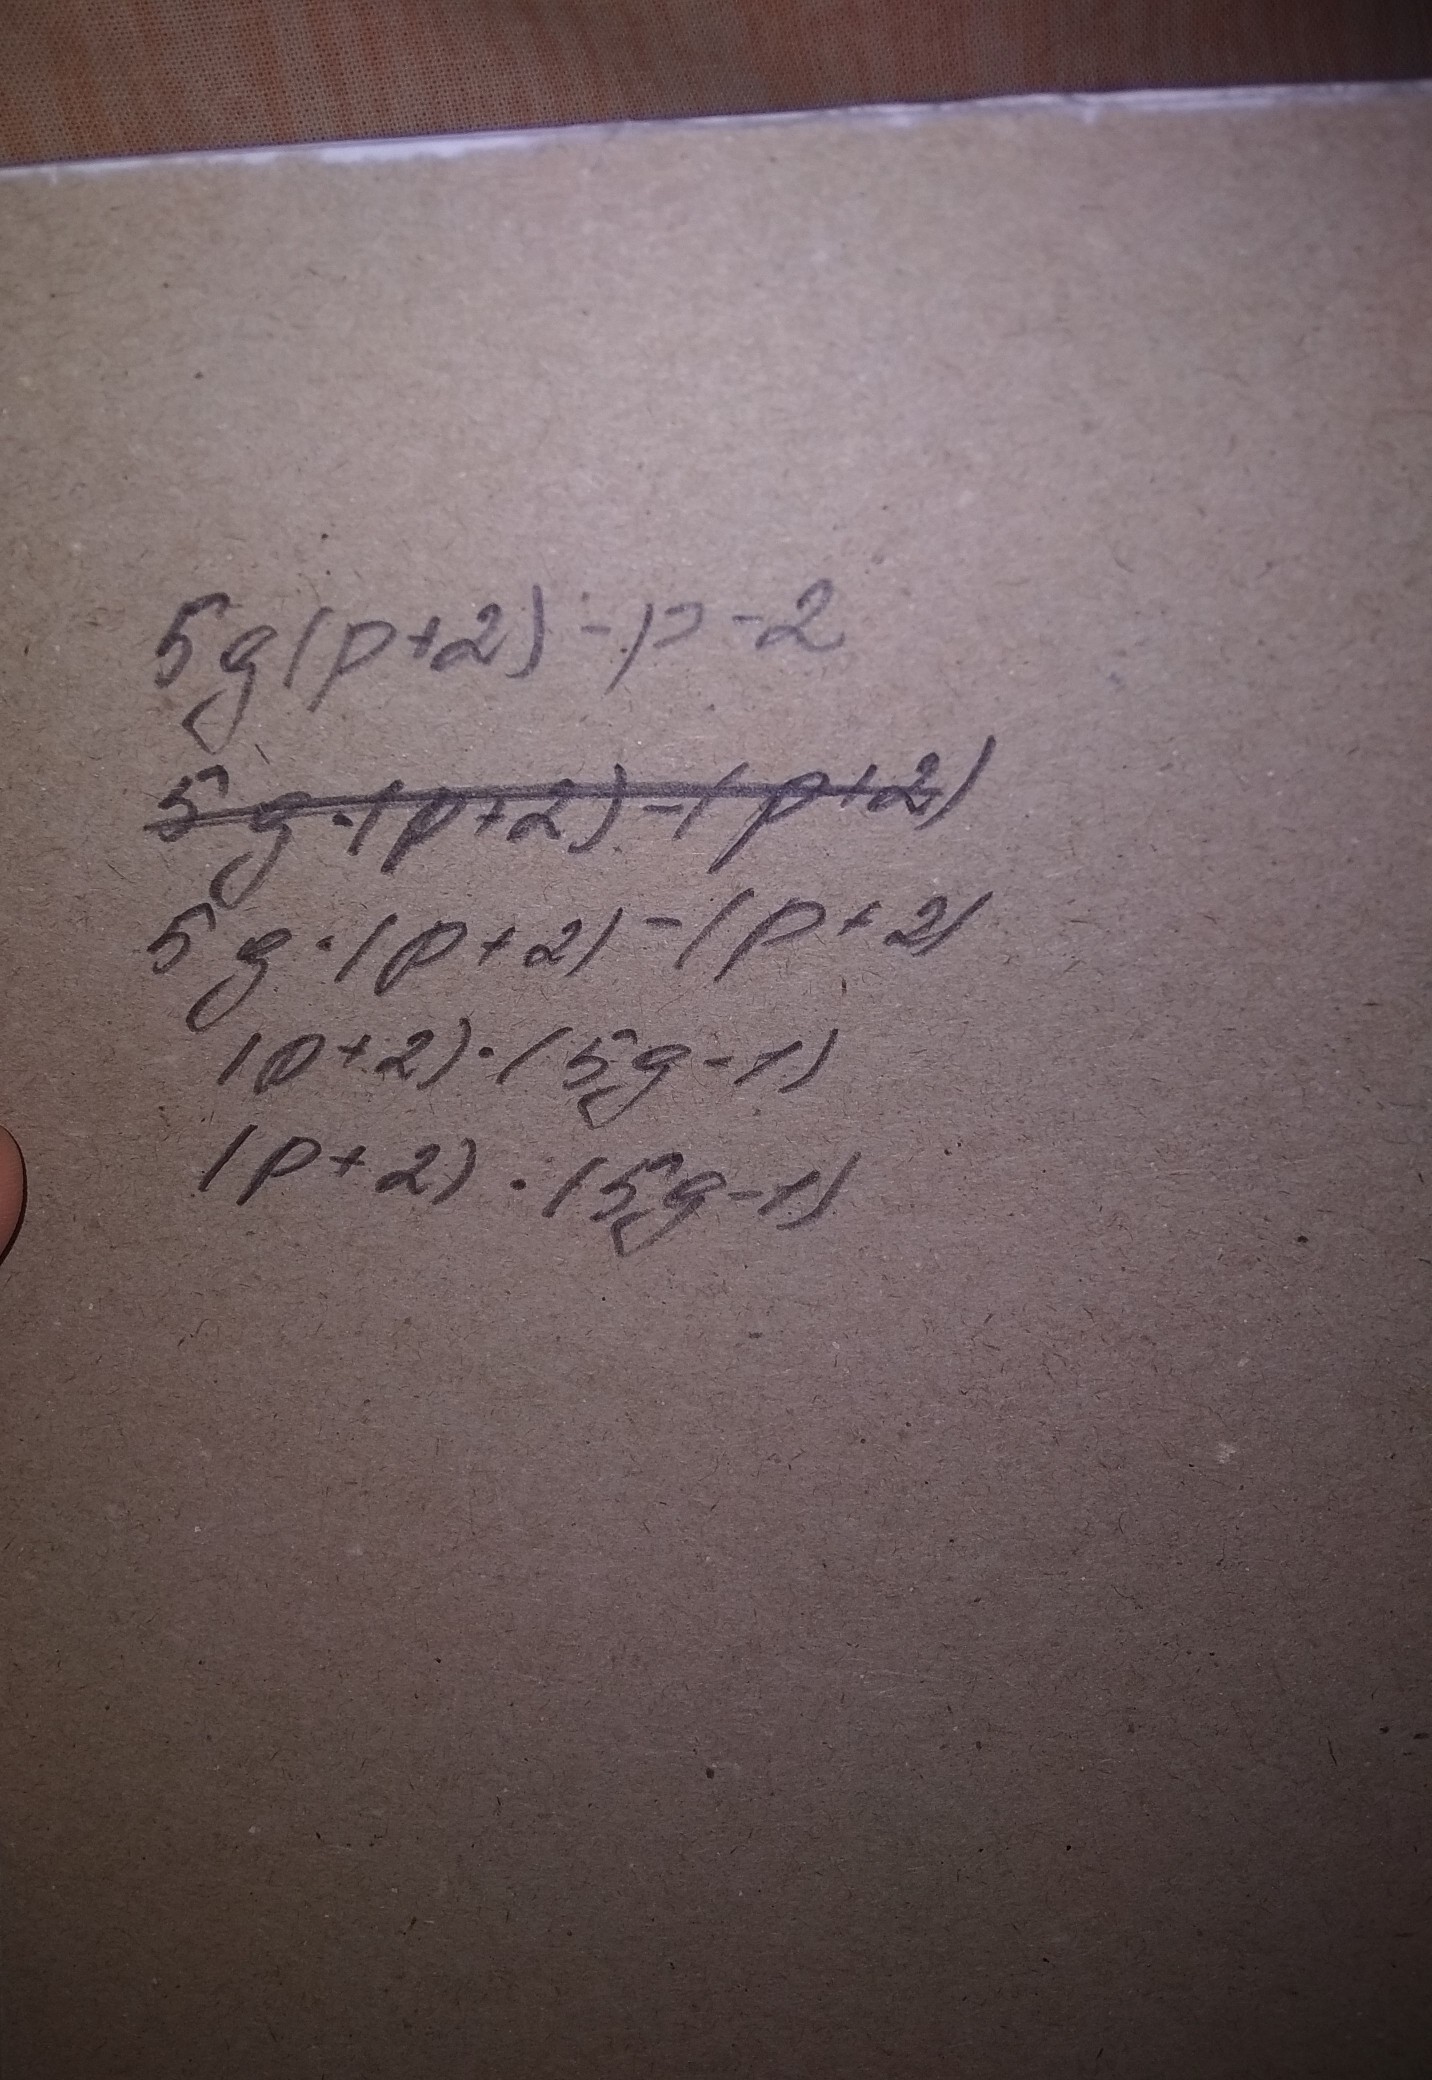 5g(p+2)-p-2
5g·(p+2)-(p+2)
5g·(p+2)-(p+2)
(p+2)·(5g-1)
(p+2)·(5g-1)